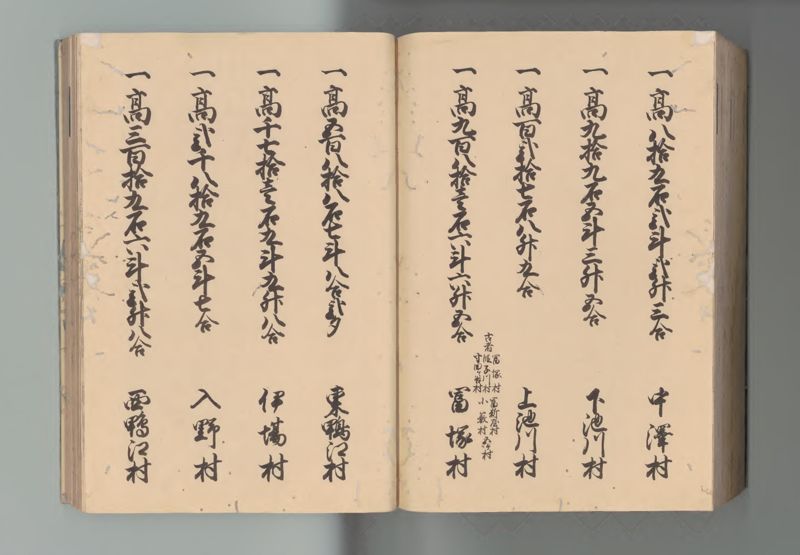 一高八拾九石弐斗弐升三合 中澤村
一高九拾九石五斗三升五合 下池川村
一高百弐拾七石八升九合 上池川村
古者 冨塚村 冨新屋村
小藪村
一高九百八拾壱石六斗六升五合 冨塚村
一高五百八拾八石七斗八合弐夕 東鴨江村
一高千七拾壱石九斗九升八合 伊場村
一高弐千八拾九石五斗七合 入野村
一高三百拾九石六斗弐升八合 西鴨江村